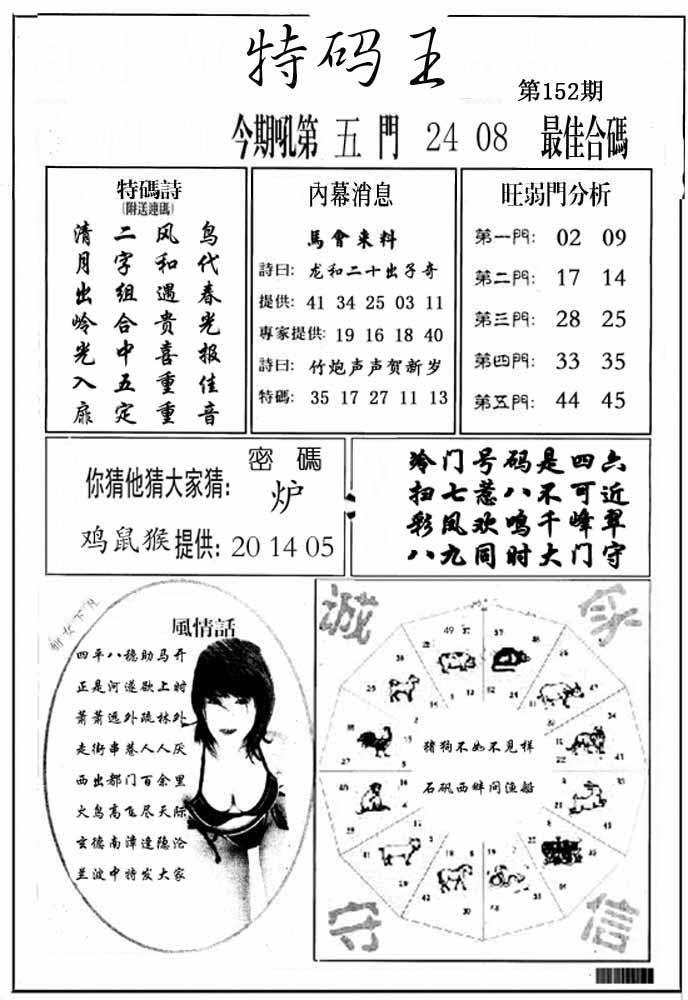 特码王
第152期
今期吼第 五 門 24 08 最佳合碼
特碼詩
(附送連碼)
鸟代春光报佳音
风和遇贵喜重重
二字组合中五定
清月出岭光入扉
內幕消息
馬會来料
詩曰: 龙和二十出子奇
提供: 41 34 25 03 11
專家提供: 19 16 18 40
詩曰: 竹炮声声贺新岁
特碼: 35 17 27 11 13
旺弱門分析
第一門: 02 09
第二門: 17 14
第三門: 28 25
第四門: 33 35
第五門: 44 45
密碼
你猜他猜大家猜: 炉
鸡鼠猴 提供: 20 14 05
冷门号码是四六
扫七惹八不可近
彩凤欢鸣千峰翠
八九同时大门守
仙女下凡
風情話
四平八稳助马开
正是河遂欲上时
萧萧远外疏林外
走街串巷人人厌
西出都门百余里
大鸟高飞尽天际
玄德南漳逢隐沦
兰波中特发大家
诚
猪狗不如不见样
石矾西畔问渔船
守
信